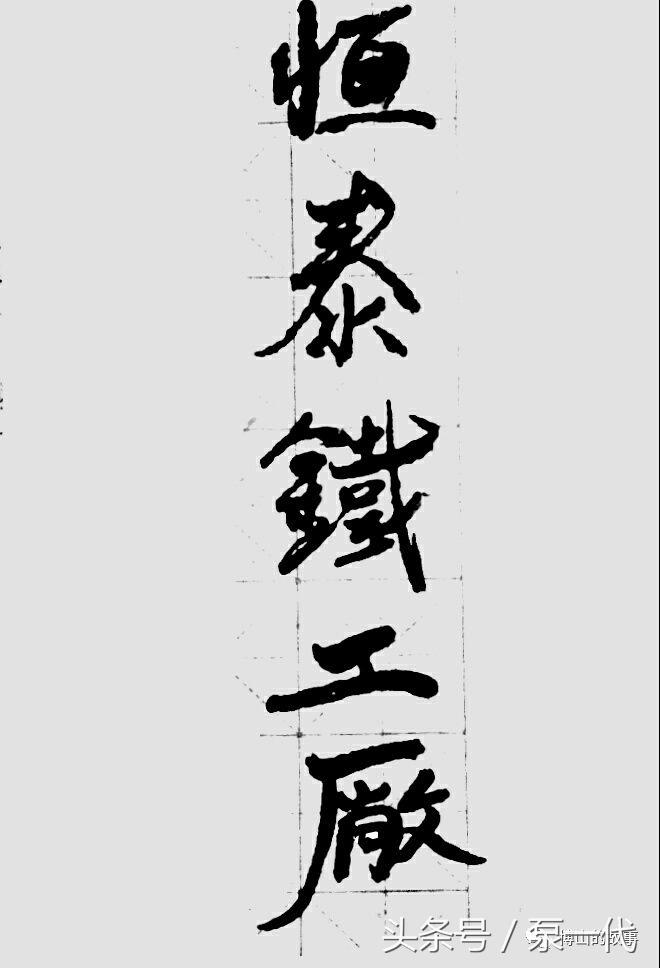 恒泰鐵工厰
头条号 / 泵一代
博山的故事